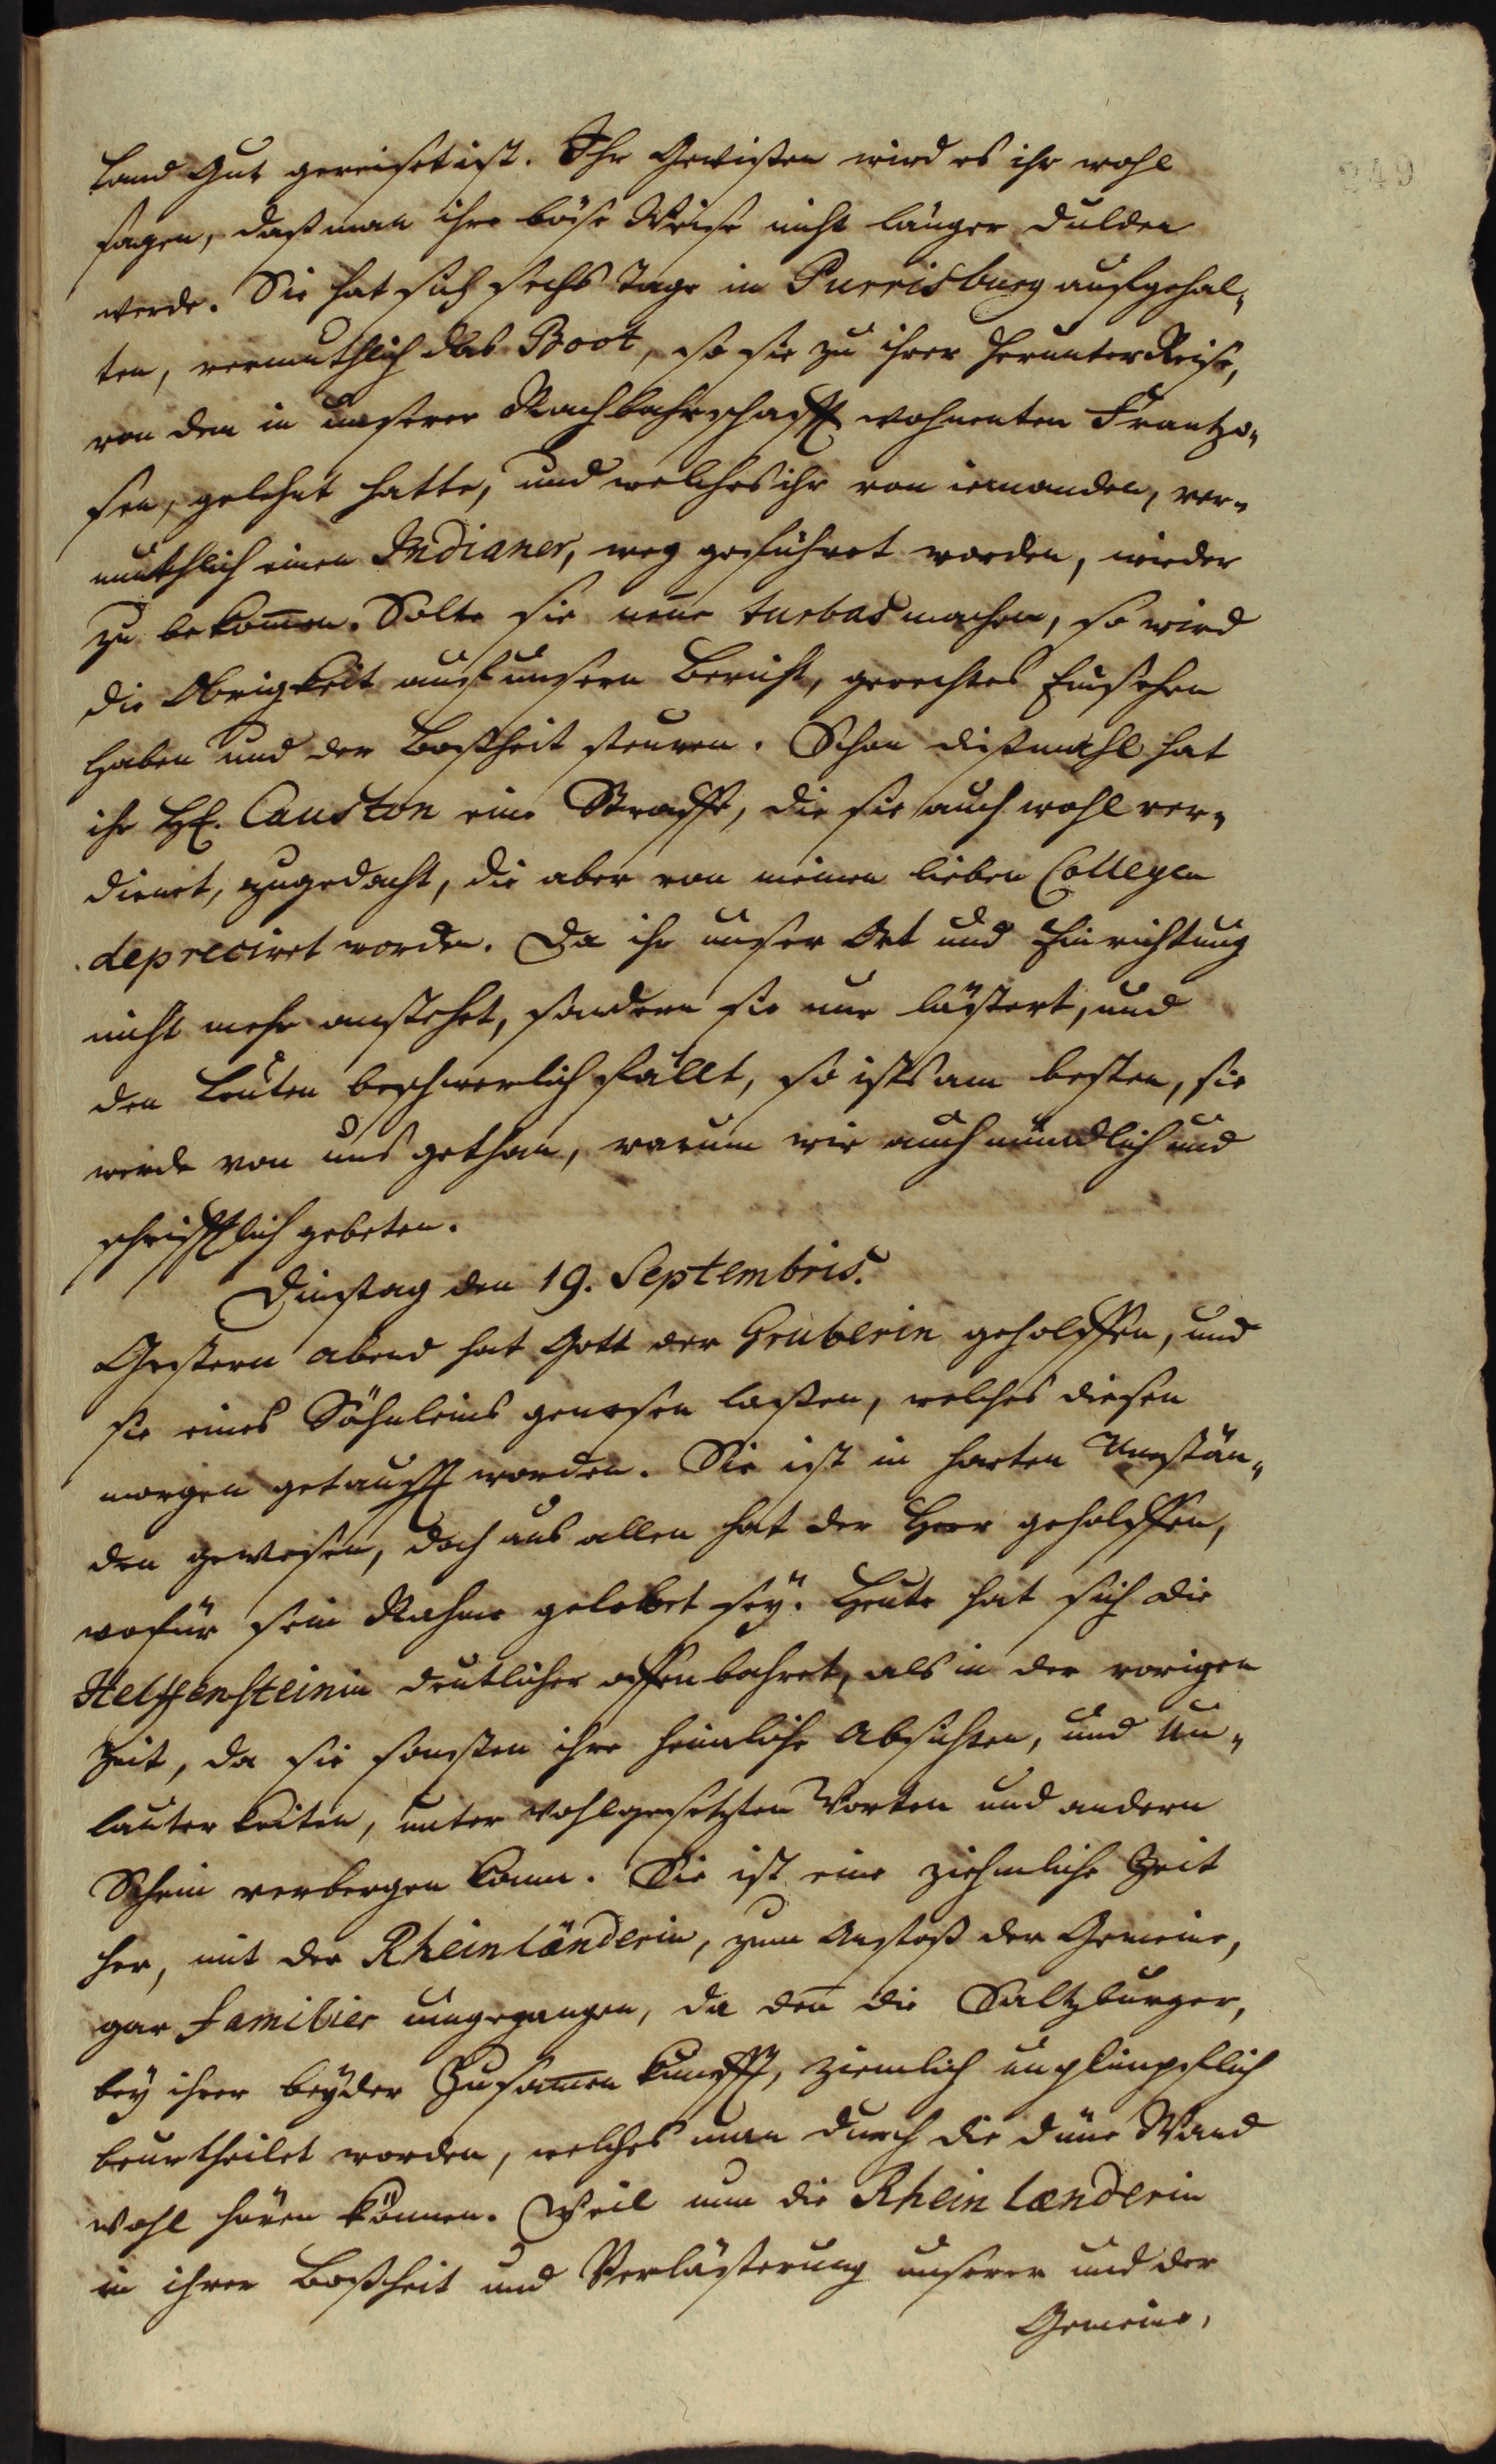 349
Land Gut gereiset ist. Ihr Gewißen wird es ihr wohl
sagen, daß man ihre böse Weise nicht länger dulden
werde. Sie hat sich sechs Tage in Purrisburg aufgehal„
ten, vermuthlich das Boot, so sie zu ihrer Herunter Reise,
von den in unserer Nachbahrschafft wohnenten Frantzo„
sen, gelehnt hatte, und welches ihr von iemanden, ver„
muthlich einen Indianer, weg geführet worden, wieder
zu bekom̄en. Solte sie neue turbas machen, so wird
die Obrigkeit auf unsern Bericht, gerechtes Einsehen
haben und der Boßheit steuren. Schon dißmahl hat
ihr H. Causton eine Straffe, die sie auch wohl ver„
dienet, zugedacht, die aber von meinen lieben Collegen
depreciret worden. Da ihr unser Ort und Einrichtung
nicht mehr anstehet, sondern sie nur lästert, und
den Leuten beschwerlich fällt, so ists am besten, sie
werde von uns gethan, warum wir auch mündlich und
schrifftlich gebeten.
Dinstag den 19. Septembris.
Gestern abend hat Gott der Gruberin geholffen, und
sie eines Söhnleins genesen laßen, welches diesen
morgen getaufft worden. Sie ist in harten Umstän„
den gewesen, doch aus allen hat der Herr geholffen,
wofür sein Nahme gelobet sey. Heute hat sich die
Helffensteinin deutlicher offenbahret, als in der vorigen
Zeit, da sie sonsten ihre heimliche Absichten, und Un„
lauterkeiten, unter wohlgesetzten Worten und andern
Schein verbergen kann. Sie ist eine ziehmliche Zeit
her, mit der Rheinländerin, zum Anstoß der Gemeine,
gar familier umgegangen, da den̄ die Saltzburger,
bey ihrer beyder Zusam̄enkunfft, ziemlich unglimpflich
beurtheilet worden, welches man durch die dün̄e Wand
wohl hören können. Weil nun die Rhein lænderin
in ihrer Boßheit und Verlästerung unserer und der
Gemeine,